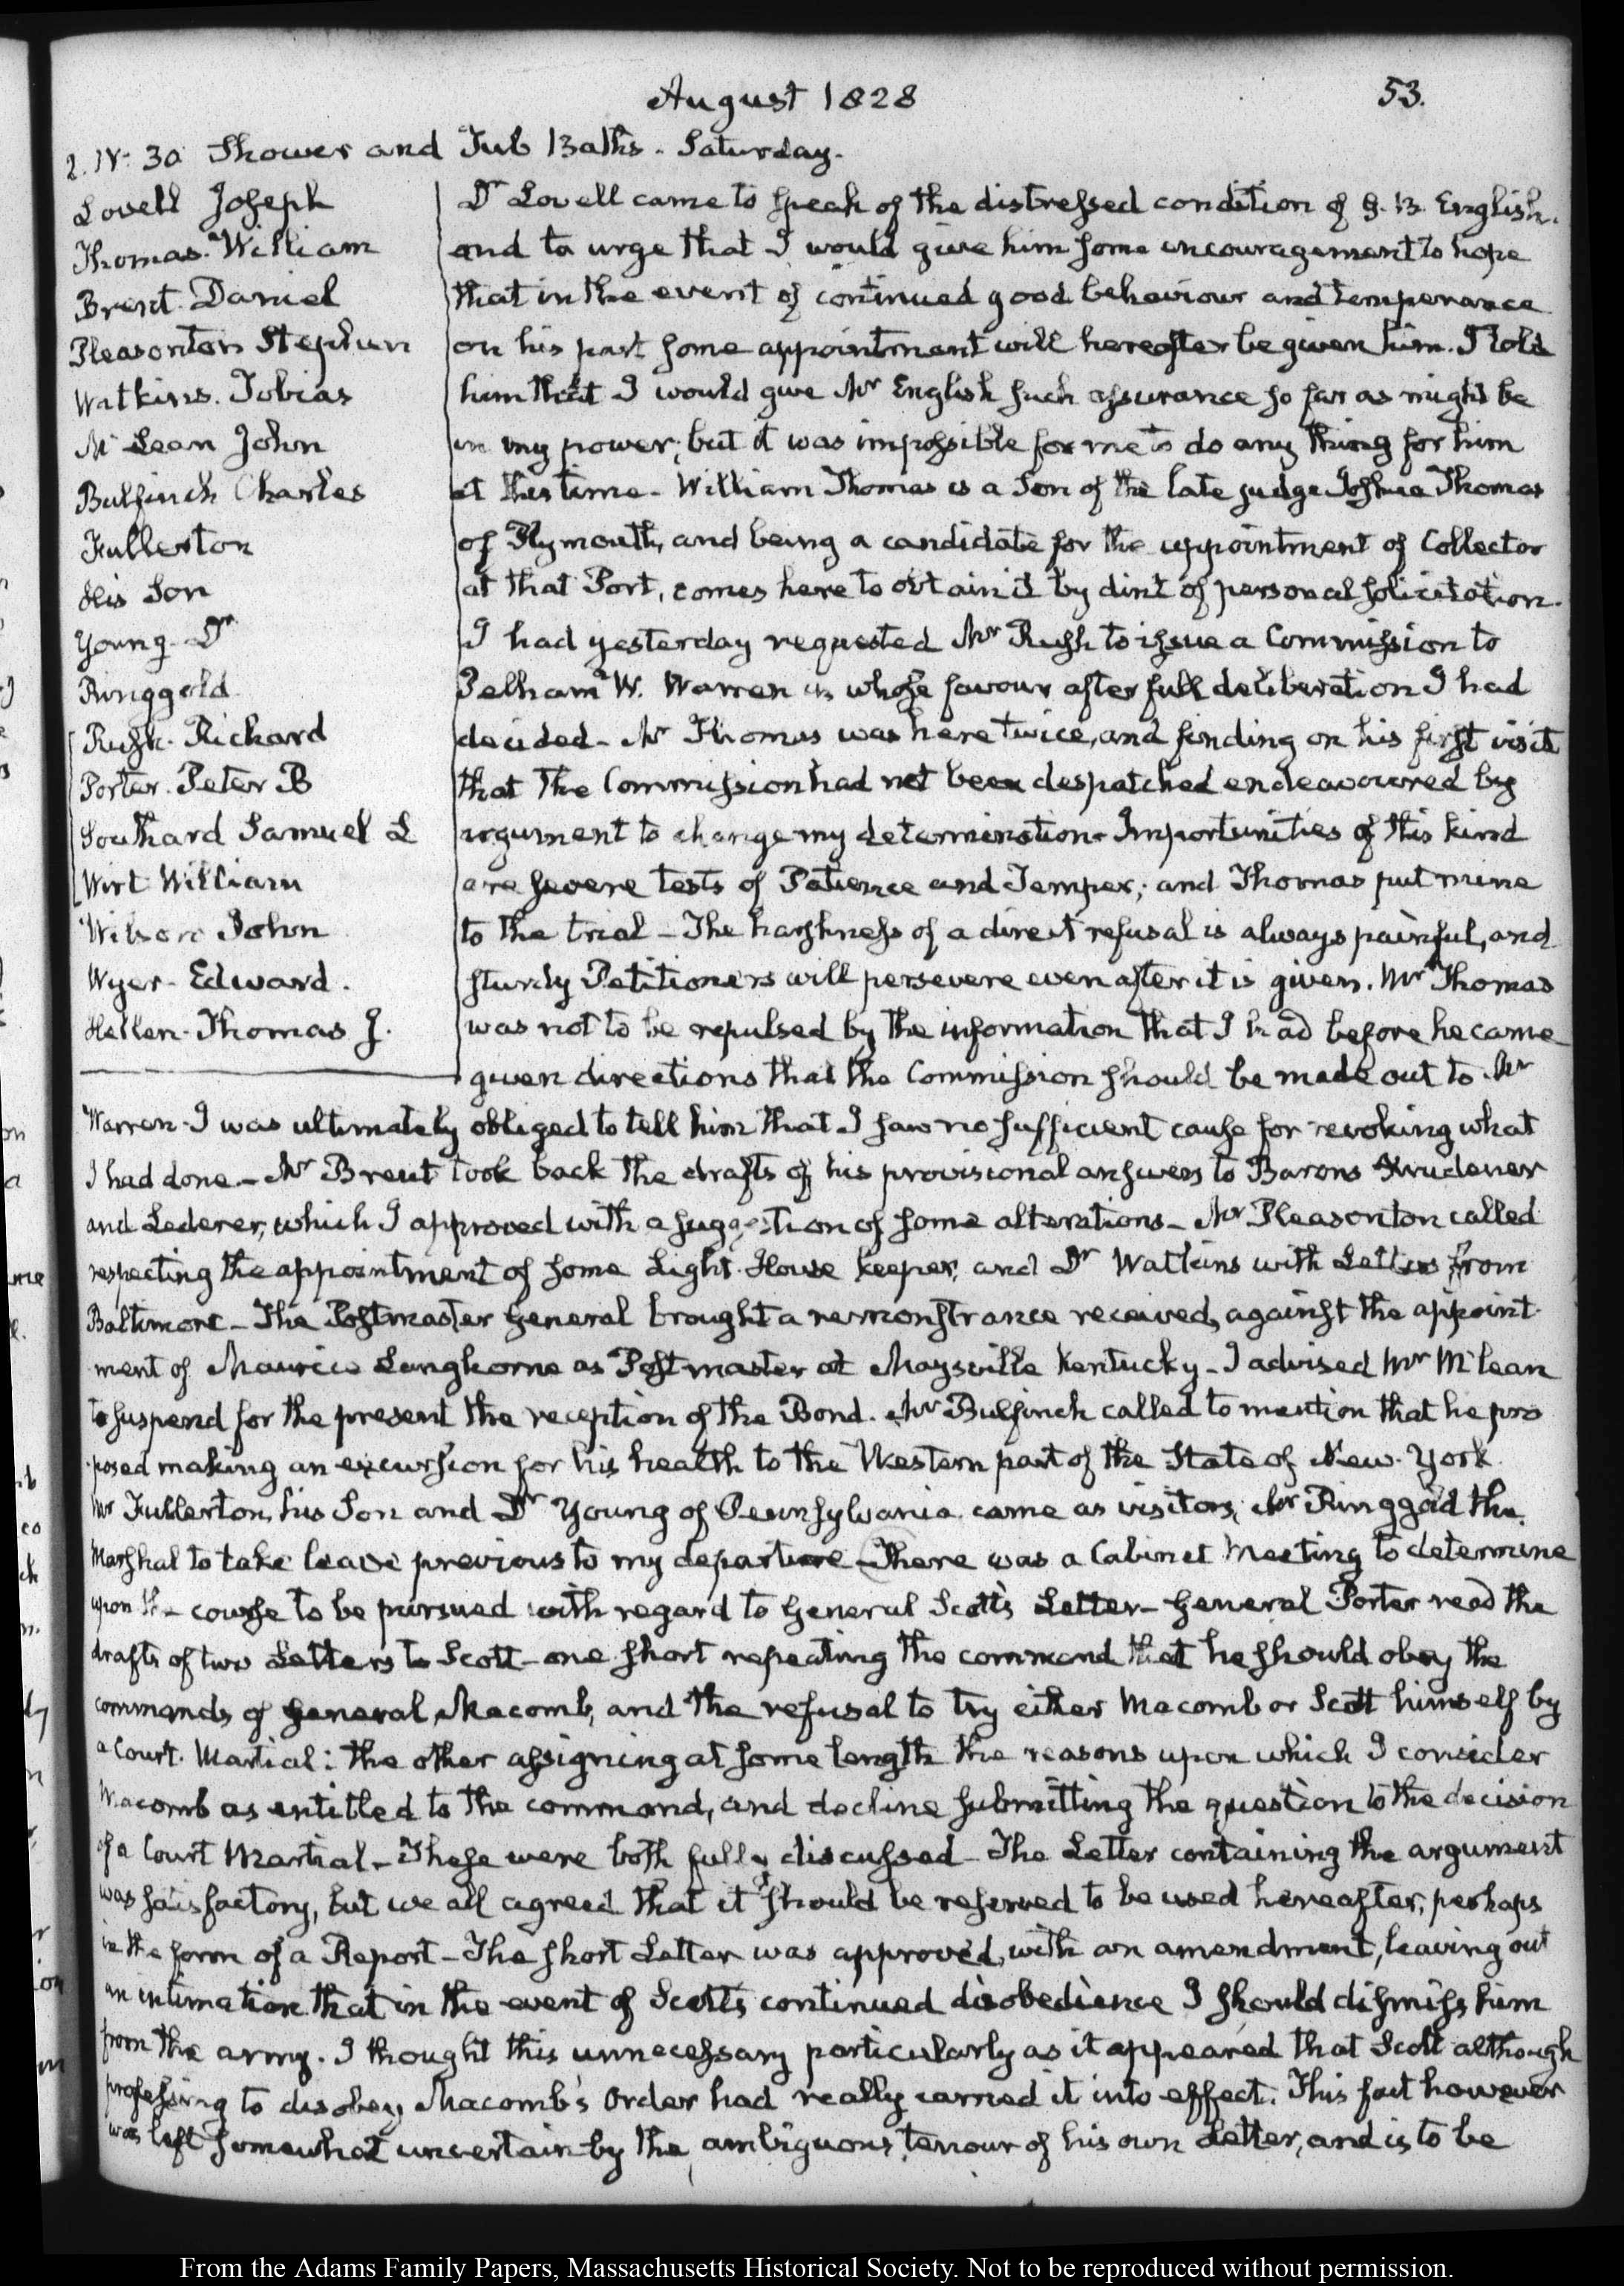 August 1828
53.
2. IV. 30 Shower and Tub Baths. Saturday.
Lovell Joseph
Thomas. William
Brent. Daniel
Pleasonton Stephen
Watkins. Tobias
Mc Lean John
Bulfinch Charles
Fullerton
His Son
Young. Dr
Ringgold
Rush. Richard
Porter. Peter B
Southard Samuel L
Wirt William
Wilson John
Wyer. Edward.
Hellen. Thomas J.
Dr Lovell came to speak of the distressed condition of G. B. English.
and to urge that I would give him some encouragement to hope
that in the event of continued good behaviour and temperance
on his part some appointment will hereafter be given him. I told
him that I would give Mr English such assurance so far as might be
in my power; but it was impossible for me to do any thing for him
at this time. William Thomas is a Son of the late judge Joshua Thomas
of Plymouth, and being a candidate for the appointment of Collector
at that Port, comes here to obtain it by dint of personal solicitation.
I had yesterday requested Mr Rush to issue a Commission to
Pelham W. Warren in whose favour after full deliberation I had
decided. Mr Thomas was here twice, and finding on his first visit
that the Commission had not been despatched endeavoured by
argument to change my determination. Importunities of this kind
are severe tests of Patience and Temper; and Thomas put mine
to the trial. The harshness of a direct refusal is always painful, and
sturdy Petitioners will persevere even after it is given. Mr Thomas
was not to be repulsed by the information that I had before he came
given directions that the Commission should be made out to Mr
Warren. I was ultimately obliged to tell him that I saw no sufficient cause for revoking what
I had done. Mr Brent took back the drafts of his provisional answers to Barons Krudener
and Lederer, which I approved with a suggestion of some alterations. Mr Pleasonton called
respecting the appointment of some Light House keeper, and Dr Watkins with Letters from
Baltimore. The Postmaster General brought a remonstrance received, against the appoint-
ment of Maurice Langhorne as Postmaster at Maysville Kentucky. I advised Mr McLean
to suspend for the present the reception of the Bond. Mr Bulfinch called to mention that he pro
posed making an excursion for his health to the Western part of the State of New-York.
Mr Fullerton, his Son and Dr Young of Pennsylvania came as visitors; Mr Ringgold the
Marshal to take leave previous to my departure. There was a Cabinet Meeting to determine
upon the course to be pursued with regard to General Scott's Letter. General Porter read the
drafts of two Letters to Scott. one short repeating the command that he should obey the
commands of General Macomb, and the refusal to try either Macomb or Scott himself by
a Court. Martial: the other assigning at some length the reasons upon which I consider
Macomb as entitled to the command, and decline submitting the question to the decision
of a Court Martial. These were both fully discussed. The Letter containing the argument
was satisfactory, but we all agreed that it should be reserved to be used hereafter, perhaps
in the form of a Report. The short Letter was approved, with an amendment, leaving out
an intimation that in the event of Scott's continued disobedience I should dismiss him
from the army. I thought this unnecessary particularly as it appeared that Scott although
professing to disobey Macomb's Order had really carried it into effect. This fact however
was left somewhat uncertain by the ambiguous tenour of his own Letter, and is to be
From the Adams Family Papers, Massachusetts Historical Society. Not to be reproduced without permission.